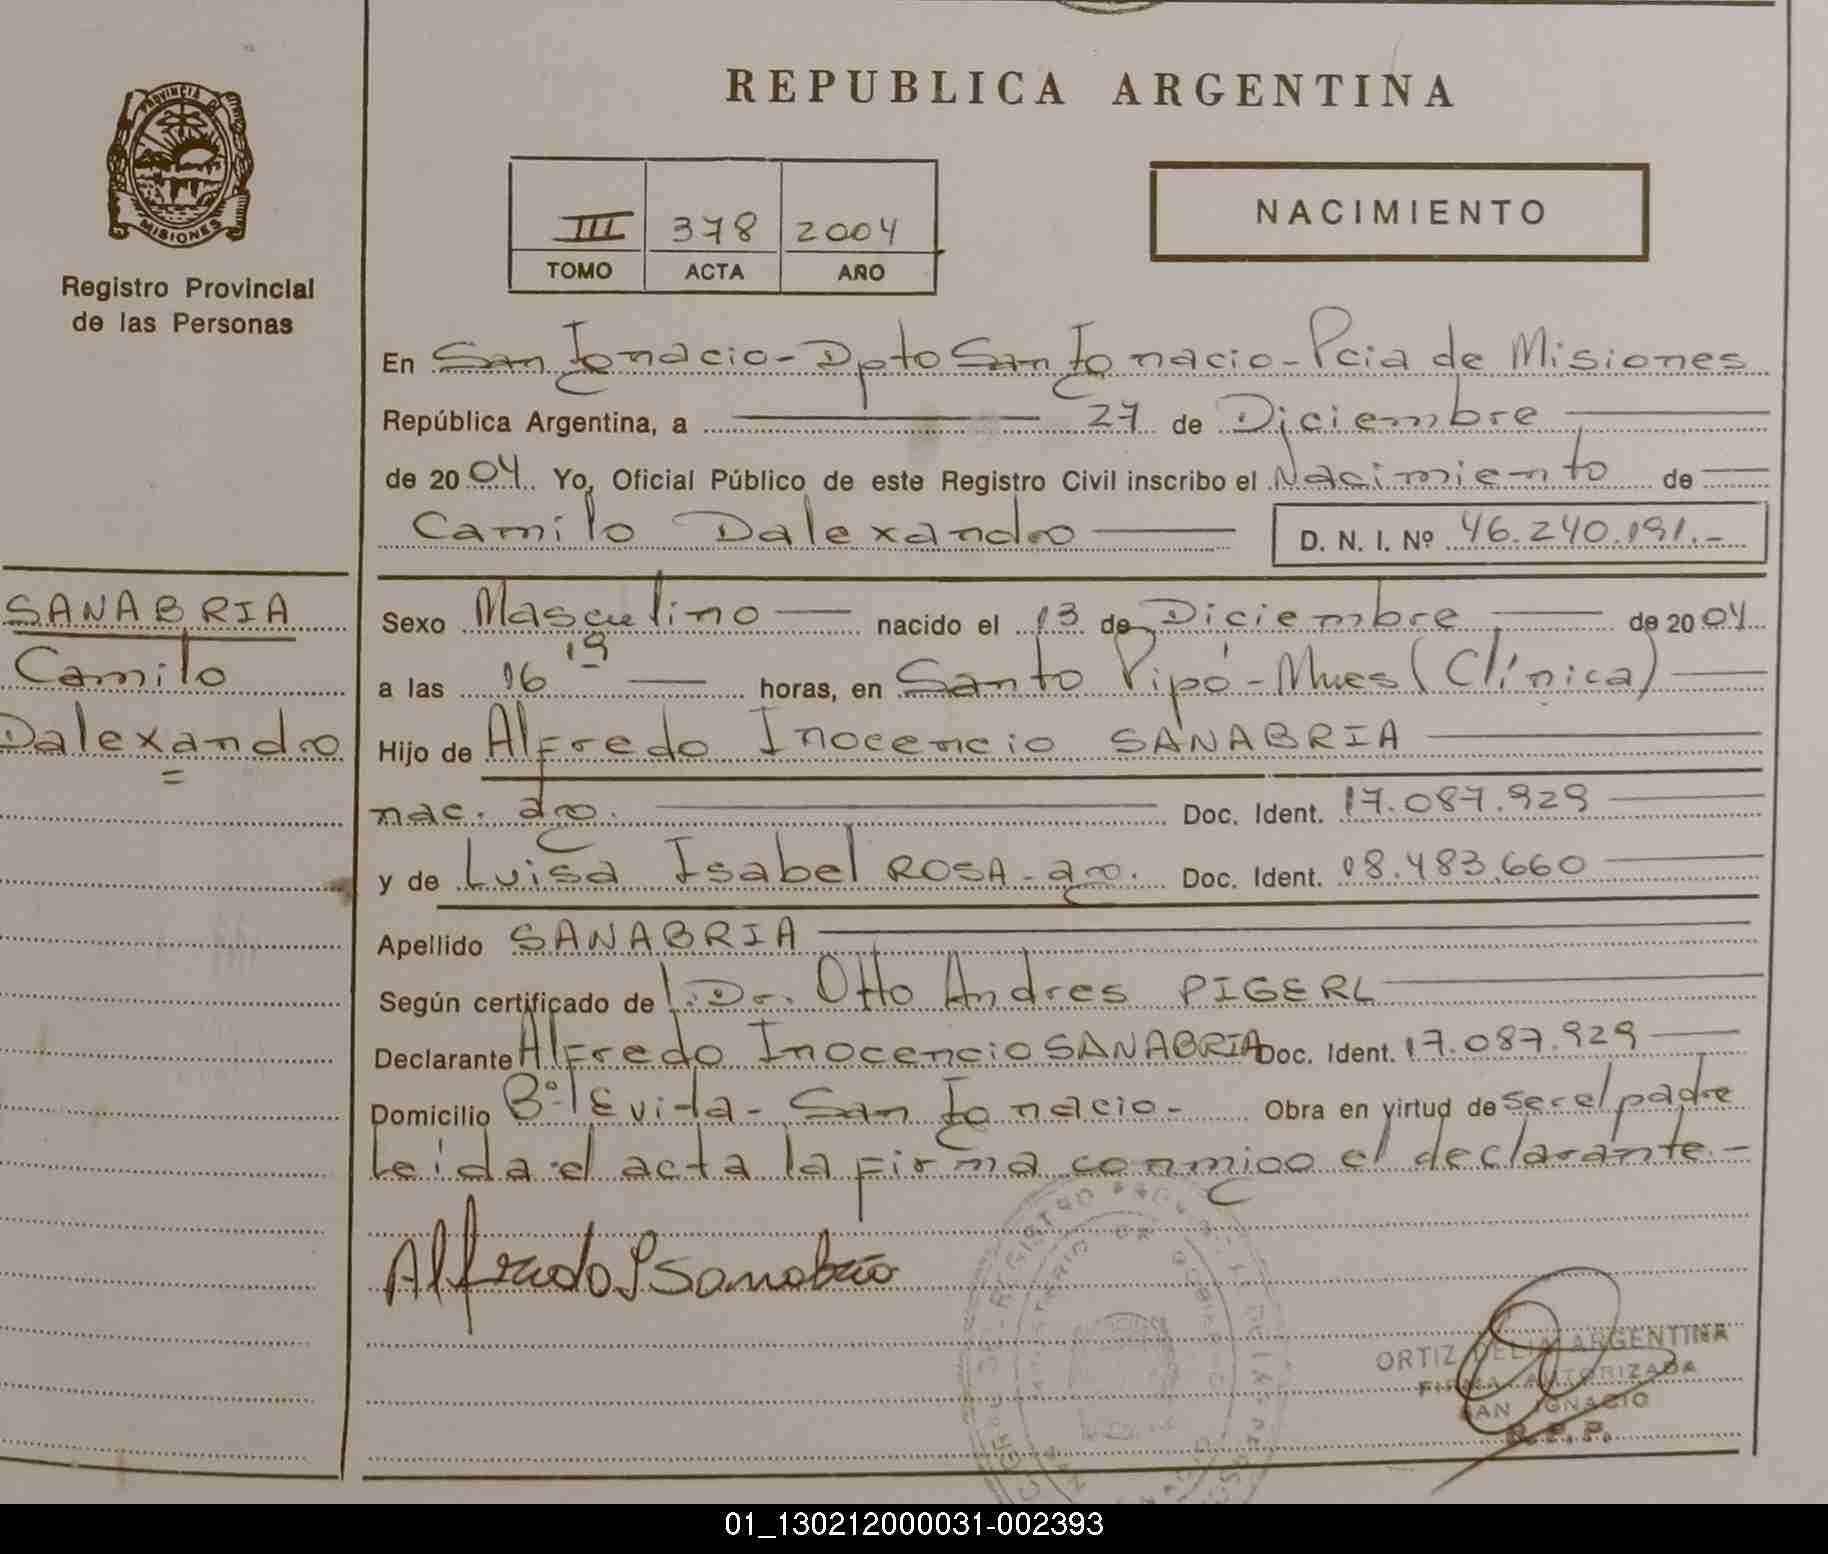 REPUBLICA ARGENTINA
PROVINCIA DE
MISIONES
Registro Provincial
de las Personas
III 378 2004
TOMO ACTA AÑO
NACIMIENTO
En San Ignacio - Dpto San Ignacio - Pcia de Misiones
República Argentina, a 27 de Diciembre
de 2004. Yo, Oficial Público de este Registro Civil inscribo el Nacimiento de
Camilo Dalexandro D. N. I. Nº 46.240.191.-
SANABRIA
Camilo
Dalexandro
Sexo Masculino nacido el 13 de Diciembre de 2004
a las 16 19 horas, en Santo Pipó - Mnes (Clínica)
Hijo de Alfredo Inocencio SANABRIA
nac. arg. Doc. Ident. 17.087.929
y de Luisa Isabel ROSA - arg. Doc. Ident. 18.483.660
Apellido SANABRIA
Según certificado de l. Dr. Otto Andres PIGERL
Declarante Alfredo Inocencio SANABRIA Doc. Ident. 17.087.929
Domicilio Bº Evita - San Ignacio - Obra en virtud de ser el padre
Leída el acta la firma conmigo el declarante.-
Alfredo I Sanabria
ORTIZ DELIA ARGENTINA
FIRMA AUTORIZADA
SAN IGNACIO
R. P. P.
01_130212000031-002393